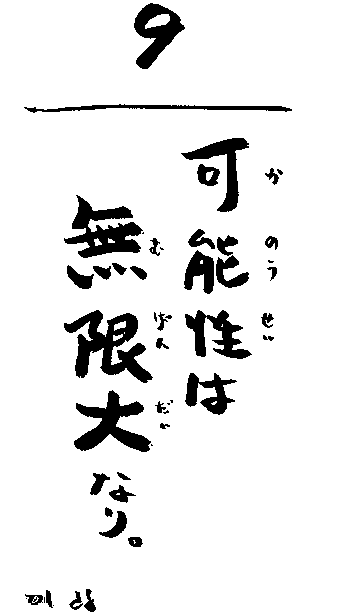 9
可能性は
かのうせい
無限大なり。
むげんだい